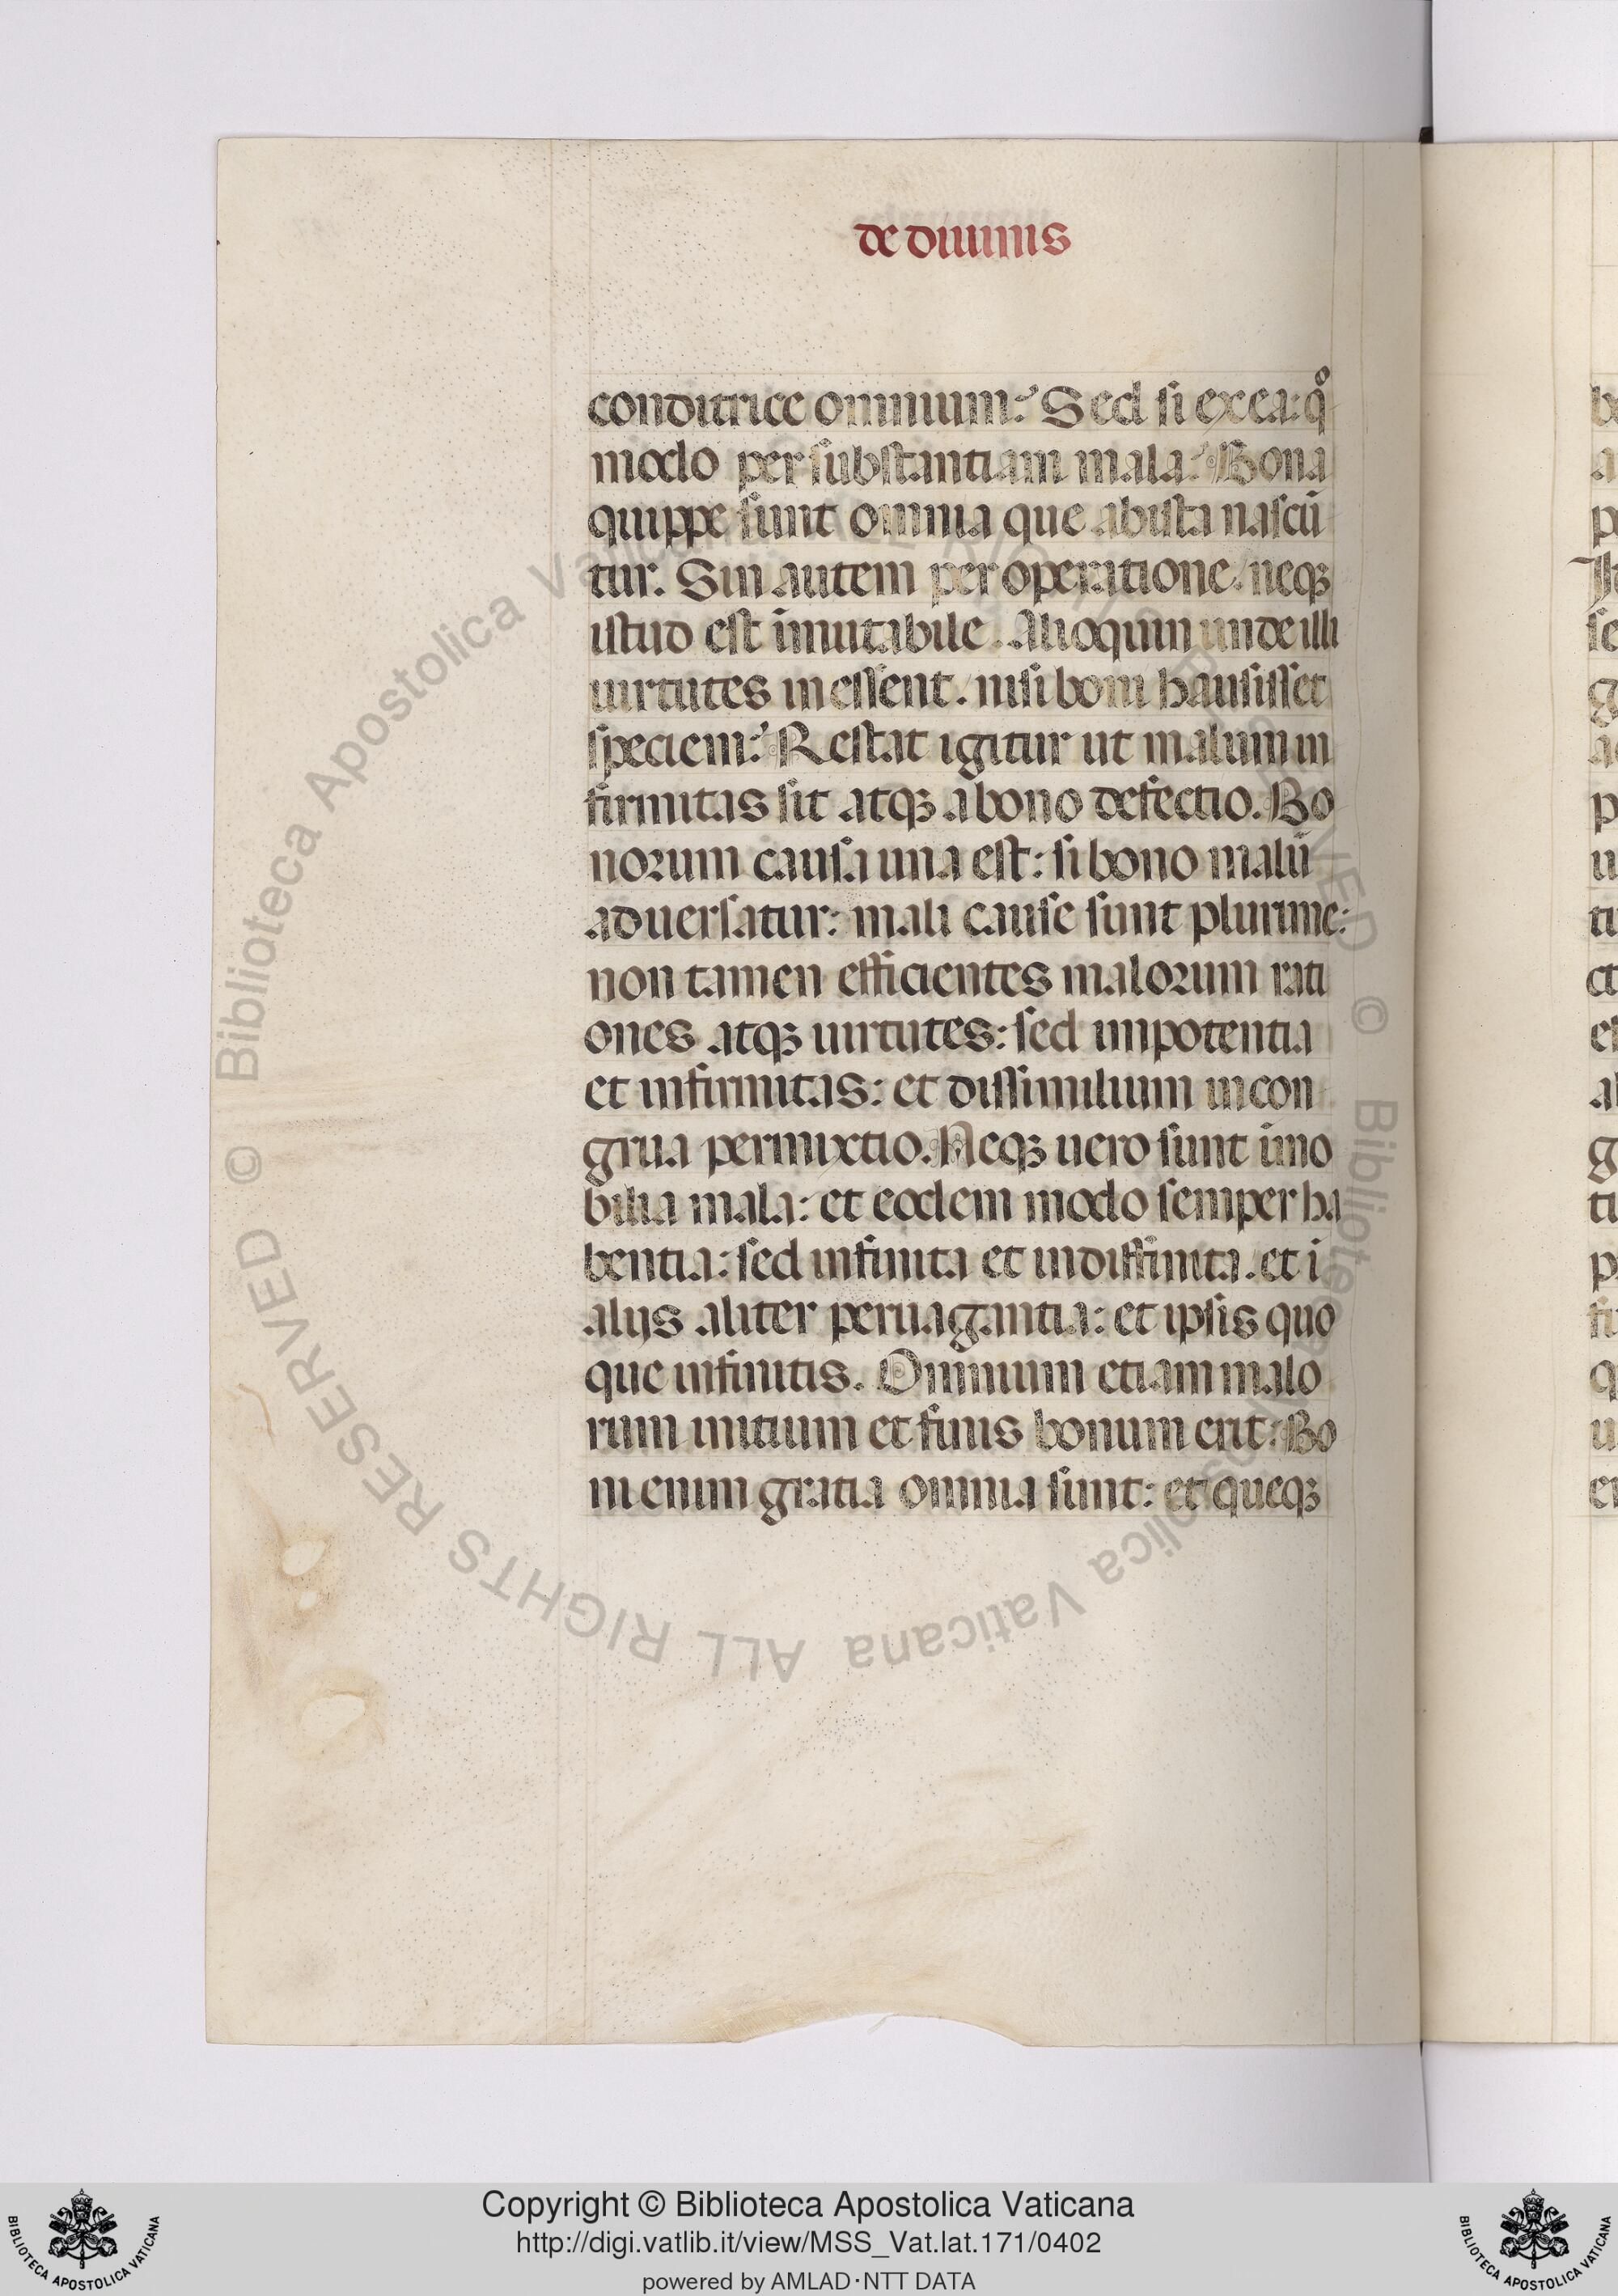 de diuinis
conditrice omnium? Sed si ex ea: qͦ
modo per substantiam mala? Bona
quippe sunt omnia que ab ista nascū
tur. Sin autem per operatione. neqꝫ
istud est īmutabile. Alioquin unde illi
uirtutes inessent. nisi boni hausisset
speciem? Restat igitur ut malum in
firmitas sit atqꝫ a bono defectio. Bo
norum causa una est: si bono malū
aduersatur: mali cause sunt plurime:
non tamen efficientes malorum rati
ones atqꝫ uirtutes: sed impotentia
et infirmitas: et dissimilium incon
grua permixtio. Neqꝫ uero sunt īmo
bilia mala: et eodem modo semper ha
bentia: sed infinita et indiffinita. et ī
alijs aliter peruagantia: et ipsis quo
que infinitis. Omnium etiam malo
rum initium et finis bonum erit: Bo
ni enim gratia omnia sunt: et queqꝫ
© Biblioteca Apostolica Vaticana ALL RIGHTS RESERVED
© Biblioteca Apostolica Vaticana ALL RIGHTS RESERVED
Copyright © Biblioteca Apostolica Vaticana
http://digi.vatlib.it/view/MSS_Vat.lat.171/0402
powered by AMLAD·NTT DATA
BIBLIOTECA APOSTOLICA VATICANA
BIBLIOTECA APOSTOLICA VATICANA